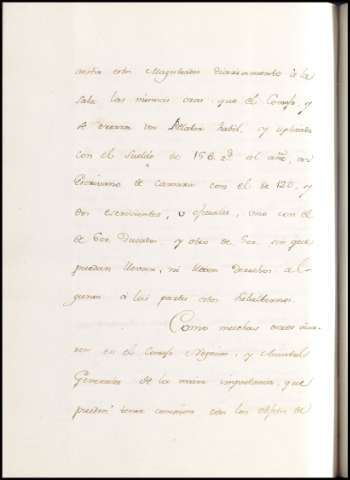 estos Magistrados diariamente á la
Sala las mismas oras que el Consejo, y
se creara un Relator habil, y aplicado
con el sueldo de 15 al año, un
Escrivano de Camara con el de 120, y
dos escrivientes, u oficiales, uno con el
de 600 Ducados y otro de 500 sin que
puedan llevar, ni lleven derechos al-
gunos á las partes estos Subalternos.
Como muchas veces
en el Consejo Negocios, y
Generales de la maior importancia, que
pueden tener conexion con los objetos de